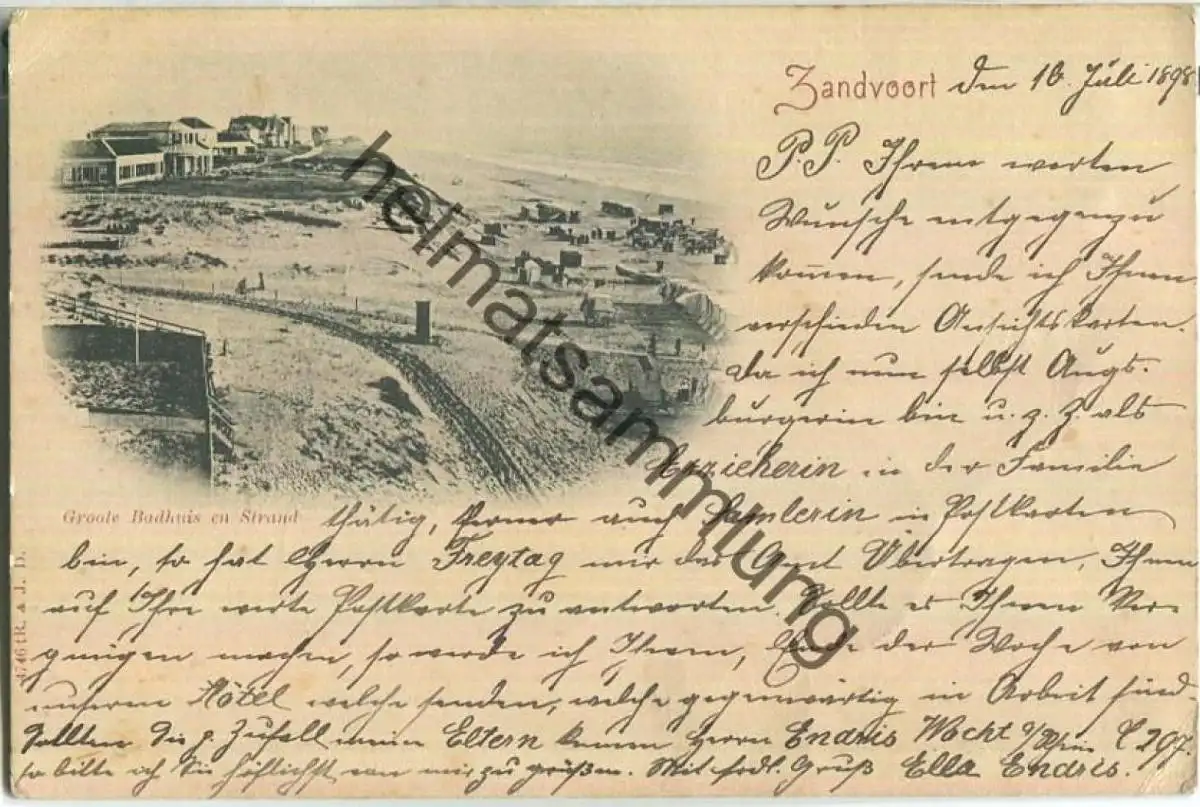 Zandvoort den 16. Juli 1898
P.P. Ihrem werten
Wunsche entgegenzu
kommen, sende ich Ihnen
verschieden Ansichtskarten.
Da ich nun selbst Augs-
burgerin bin u. z. Z. als
Erzieherin in der Familie
thätig, ferner auch Samlerin in Postkarten
bin, so hat Herrn Freytag mir das Amt Übertragen, Ihnen
auf Ihre werte Postkarte zu antworten. Sollte es Ihnen Ver-
gnügen machen, so werde ich Ihnen, Ende der Woche von
unserem Hôtel welche senden, welche gegenwärtig in Arbeit sind
Sollten Sie p. Zufall meine Eltern kennen Herrn Endris Wacht C 297.
so bitte ich Sie höflichst von mir zu grüßen. Mit frdl. Gruß Ella Endris.
Groote Badhuis en Strand
4746 R. & J. D.
heimatsammlung